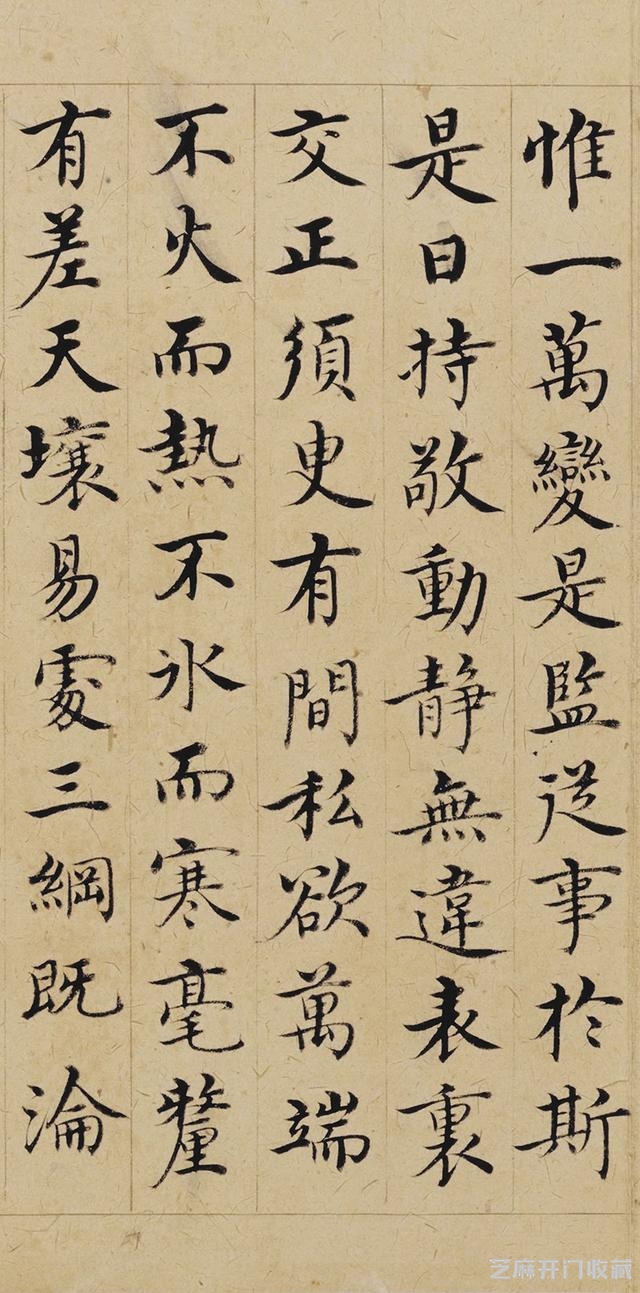 惟一萬變是監從事於斯
是曰持敬動靜無違表裏
交正須臾有間私欲萬端
不火而熱不氷而寒毫釐
有差天壤易處三綱既淪
芝麻开门收藏